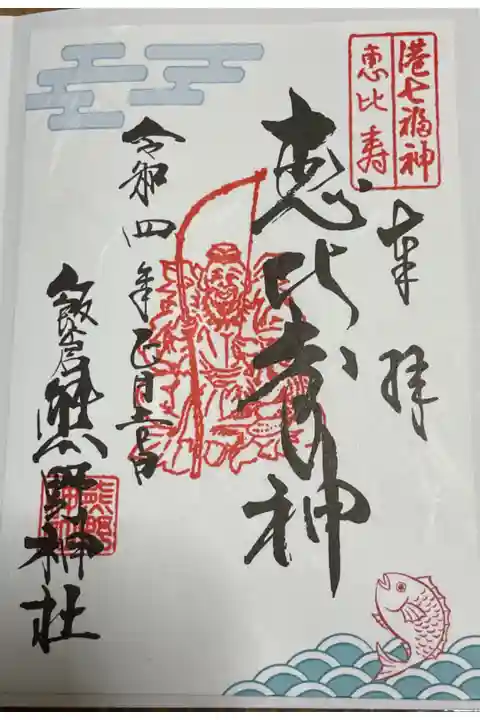 港七福神
恵比寿
奉拝
恵比寿神
令和四年正月六日
飯倉熊野神社
熊野神社